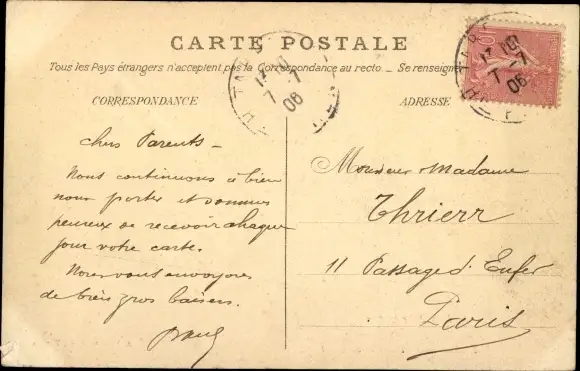 CARTE POSTALE
Tous les Pays étrangers n'acceptent pas la Correspondance au recto. _ Se renseign
CORRESPONDANCE
ADRESSE
chers Parents _
Nous continuons a bien
nous porter et sommes
heureux de recevoir chaque
jour votre carte.
Nous vous envoyons
de bien gros baisers.
Monsieur Madame
Thrierr
11 Passage d'Enfer
Paris
7 - 7
06
7 - 7
06
10